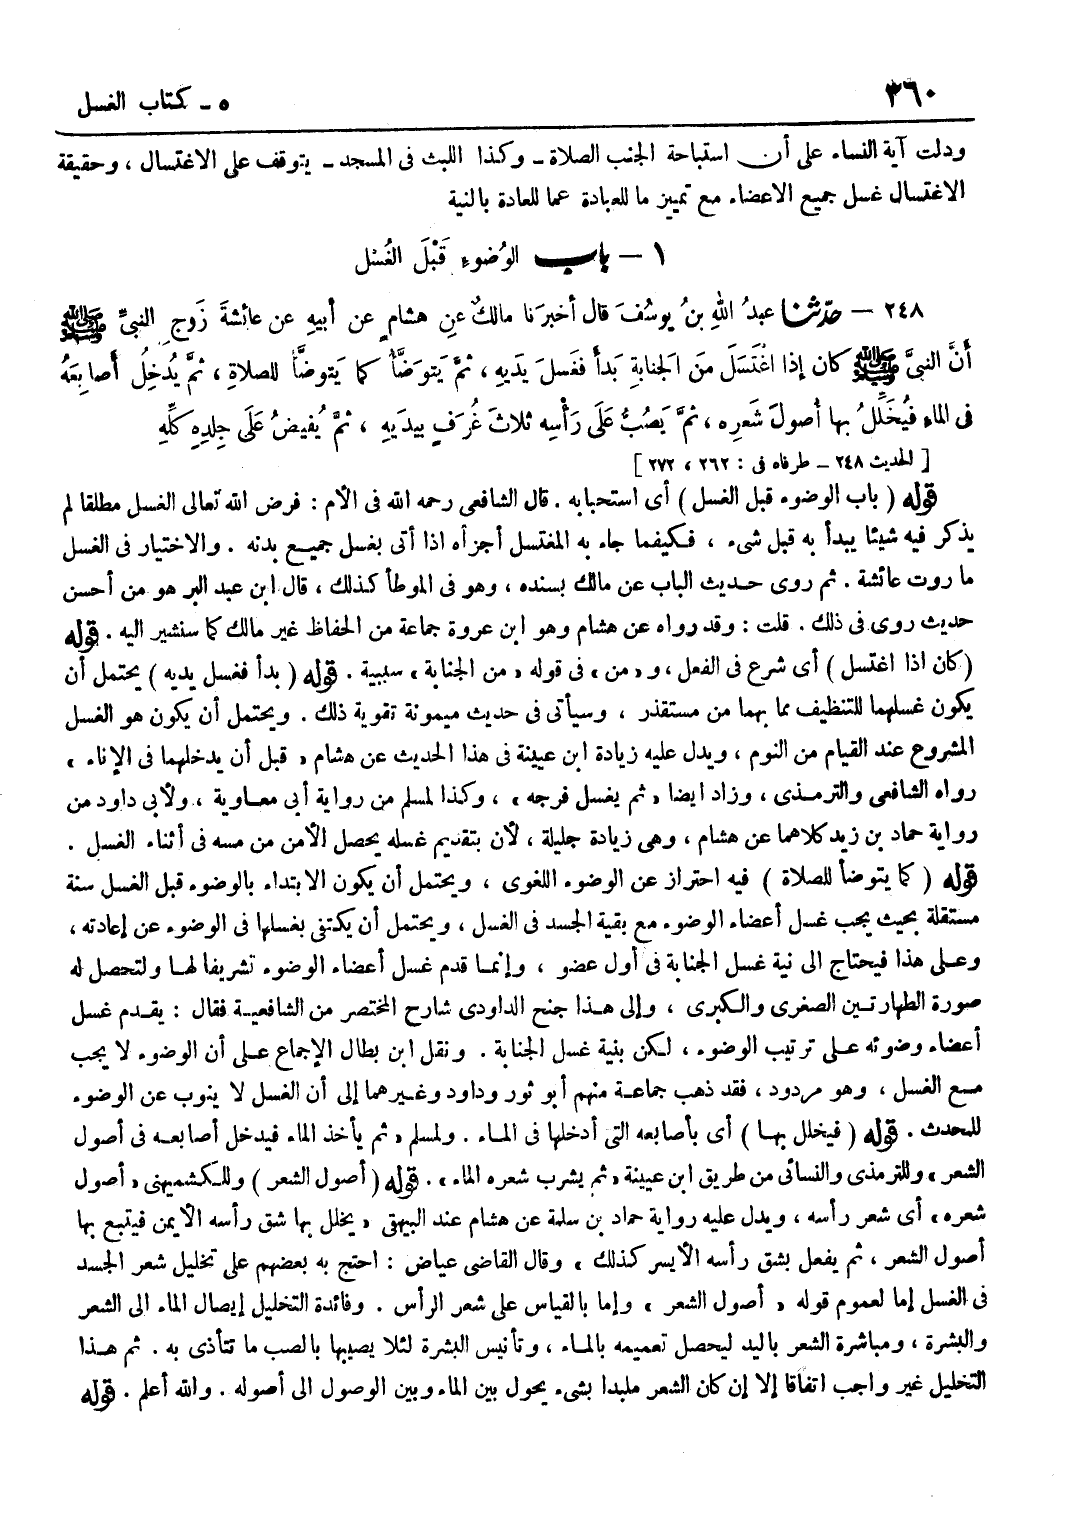 ٣٦٠
٥ - كتاب الغسل
ودلت آية النساء على أن استباحة الجنب الصلاة - وكذا اللبث فى المسجد - يتوقف على الاغتسال ، وحقيقة
الاغتسال غسل جميع الاعضاء مع تمييز ما للعبادة عما للعادة بالنية
١ - باب الوُضوءِ قَبْلَ الغُسْل
٢٤٨ - حدّثنا عبدُ اللهِ بنُ يوسُفَ قال أخبرَنا مالكٌ عن هشامٍ عن أبيهِ عن عائشةَ زَوجِ النبيِّ ﷺ
أنَّ النبيَّ ﷺ كان إذا اغْتَسَلَ منَ الجَنابةِ بَدأَ فغَسلَ يَديهِ ، ثمَّ يَتوَضَّأُ كما يَتوضَّأُ للصلاةِ ، ثمَّ يُدخِلُ أصابِعَهُ
فى الماءِ فيُخَلِّلُ بها أُصولَ شَعرِه ، ثمَّ يَصُبُّ عَلَى رَأْسِه ثلاثَ غُرَفٍ بيدَيهِ ، ثمَّ يُفيضُ عَلَى جِلدِهِ كلِّهِ
[ الحديث ٢٤٨ - طرفاه فى : ٢٦٢ ، ٢٧٢ ]
قوله ( باب الوضوء قبل الغسل ) أى استحبابه . قال الشافعى رحمه الله فى الأم : فرض الله تعالى الغسل مطلقا لم
يذكر فيه شيئا يبدأ به قبل شىء ، فكيفما جاء به المغتسل أجزأه اذا أتى بغسل جميع بدنه . والاختيار فى الغسل
ما روت عائشة . ثم روى حديث الباب عن مالك بسنده ، وهو فى الموطأ كذلك ، قال ابن عبد البر هو من أحسن
حديث روى فى ذلك . قلت : وقد رواه عن هشام وهو ابن عروة جماعة من الحفاظ غير مالك كما سنشير اليه . قوله
(كان اذا اغتسل ) أى شرع فى الفعل ، و « من » فى قوله « من الجنابة » سببية . قوله ( بدأ فغسل يديه ) يحتمل أن
يكون غسلهما للتنظيف مما بهما من مستقذر ، وسيأتى فى حديث ميمونة تقوية ذلك . ويحتمل أن يكون هو الغسل
المشروع عند القيام من النوم ، ويدل عليه زيادة ابن عيينة فى هذا الحديث عن هشام « قبل أن يدخلهما فى الإناء »
رواه الشافعى والترمذى ، وزاد ايضا « ثم يغسل فرجه » ، وكذا لمسلم من رواية أبى معاوية ، ولأبى داود من
رواية حماد بن زيد كلاهما عن هشام ، وهى زيادة جليلة ، لأن بتقديم غسله يحصل الأمن من مسه فى أثناء الغسل .
قوله ( كما يتوضأ للصلاة ) فيه احتراز عن الوضوء اللغوى ، ويحتمل أن يكون الابتداء بالوضوء قبل الغسل سنة
مستقلة بحيث يجب غسل أعضاء الوضوء مع بقية الجسد فى الغسل ، ويحتمل أن يكتفى بغسلها فى الوضوء عن إعادته ،
وعلى هذا فيحتاج الى نية غسل الجنابة فى أول عضو ، وإنما قدم غسل أعضاء الوضوء تشريفا لها ولتحصل له
صورة الطهارتين الصغرى والكبرى ، وإلى هذا جنح الداودى شارح المختصر من الشافعية فقال : يقدم غسل
أعضاء وضوئه على ترتيب الوضوء ، لكن بنية غسل الجنابة . ونقل ابن بطال الإجماع على أن الوضوء لا يجب
مع الغسل ، وهو مردود ، فقد ذهب جماعة منهم أبو ثور وداود وغيرهما إلى أن الغسل لا ينوب عن الوضوء
للمحدث . قوله ( فيخلل بها ) أى بأصابعه التى أدخلها فى الماء . ولمسلم « ثم يأخذ الماء فيدخل أصابعه فى أصول
الشعر » وللترمذى والنسائى من طريق ابن عيينة « ثم يشرب شعره الماء » . قوله ( أصول الشعر ) وللكشميهنى « أصول
شعره » أى شعر رأسه ، ويدل عليه رواية حماد بن سلمة عن هشام عند البيهقى « يخلل بها شق رأسه الأيمن فيتبع بها
أصول الشعر ، ثم يفعل بشق رأسه الأيسر كذلك » وقال القاضى عياض : احتج به بعضهم على تخليل شعر الجسد
فى الغسل إما لعموم قوله « أصول الشعر » وإما بالقياس على شعر الرأس . وفائدة التخليل إيصال الماء الى الشعر
والبشرة ، ومباشرة الشعر باليد ليحصل تعميمه بالماء ، وتأنيس البشرة لئلا يصيبها بالصب ما تتأذى به . ثم هذا
التخليل غير واجب اتفاقا إلا إن كان الشعر ملبدا بشىء يحول بين الماء وبين الوصول الى أصوله . والله أعلم . قوله